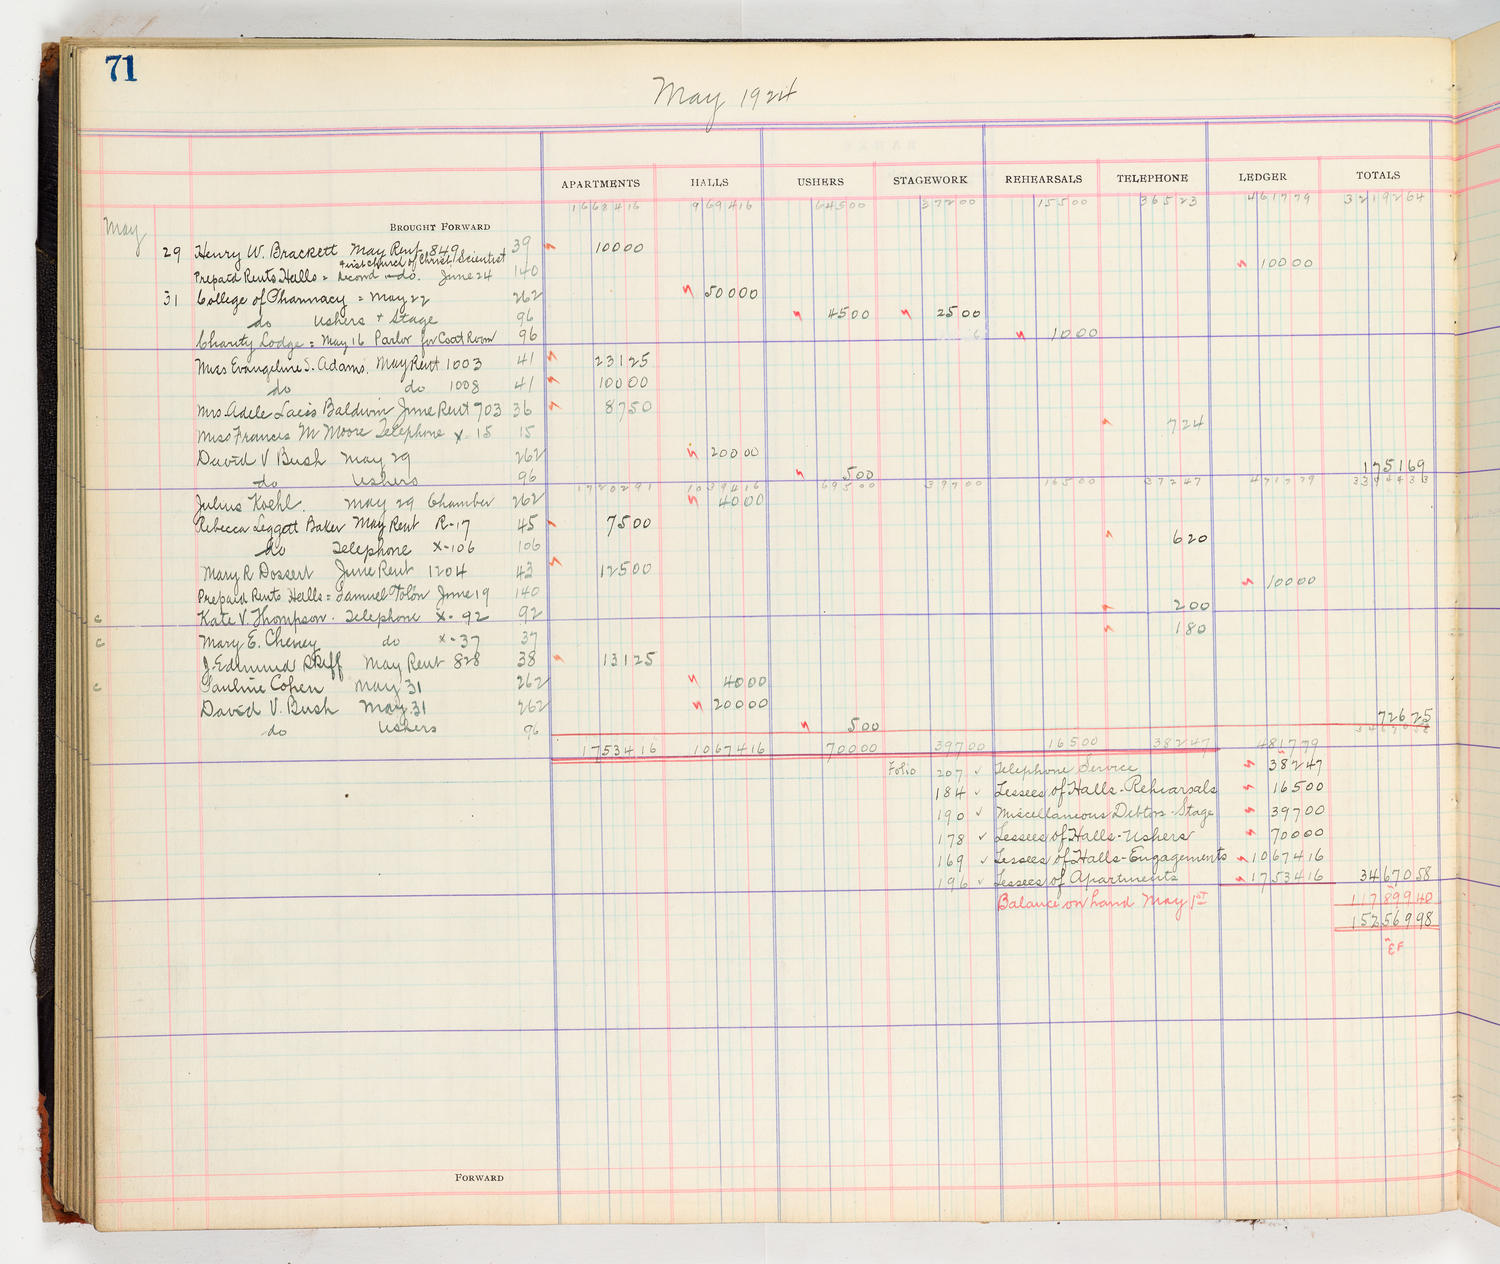 71
May 1924
APARTMENTS HALLS USHERS STAGEWORK REHEARSALS TELEPHONE LEDGER TOTALS
1668416 969416 64500 37200 15500 36523 461779 3219264
May BROUGHT FORWARD
29 Henry W. Brackett May Rent 849 39 10000
First Church of Christ Scientist
Prepaid Rents Halls = Second do. June 24 140 10000
31 College of Pharmacy = May 22 262 50000
do Ushers + Stage 96 4500 2500
Charity Lodge = May 16 Parlor for Coat Room 96 1000
Miss Evangeline S. Adams. May Rent 1003 41 23125
do do 1008 41 10000
Mrs. Adele Laeis Baldwin June Rent 703 36 8750
Miss Francis M Moore Telephone X-15 15 724
David V Bush May 29 262 20000
do Ushers 96 500 175169
1720291 1039416 69500 39700 16500 37247 471779 3394433
Julius Koehl. May 29 Chamber 262 4000
Rebecca Leggett Baker May Rent R-17 45 7500
do Telephone X-106 106 620
Mary R Dossert June Rent 1204 43 12500
Prepaid Rents Halls = Samuel Tolon June 19 140 10000
c Kate V. Thompson. Telephone X-92 92 200
c Mary E. Cheney do X-37 37 180
J. Edmund Skiff May Rent 828 38 13125
c Pauline Cohen May 31 262 4000
David V. Bush May 31 262 20000
do Ushers 96 500 72625
1753416 1067416 70000 39700 16500 38247 481779
Folio 207 ✓ Telephone Service 38247
184 ✓ Lessees of Halls-Rehearsals 16500
190 ✓ Miscellaneous Debtors-Stage 39700
178 ✓ Lessees of Halls-Ushers 70000
169 ✓ Lessees of Halls-Engagements 1067416
196 ✓ Lessees of Apartments 1753416 3467058
Balance on hand May 1st 11789940
15256998
EF
FORWARD